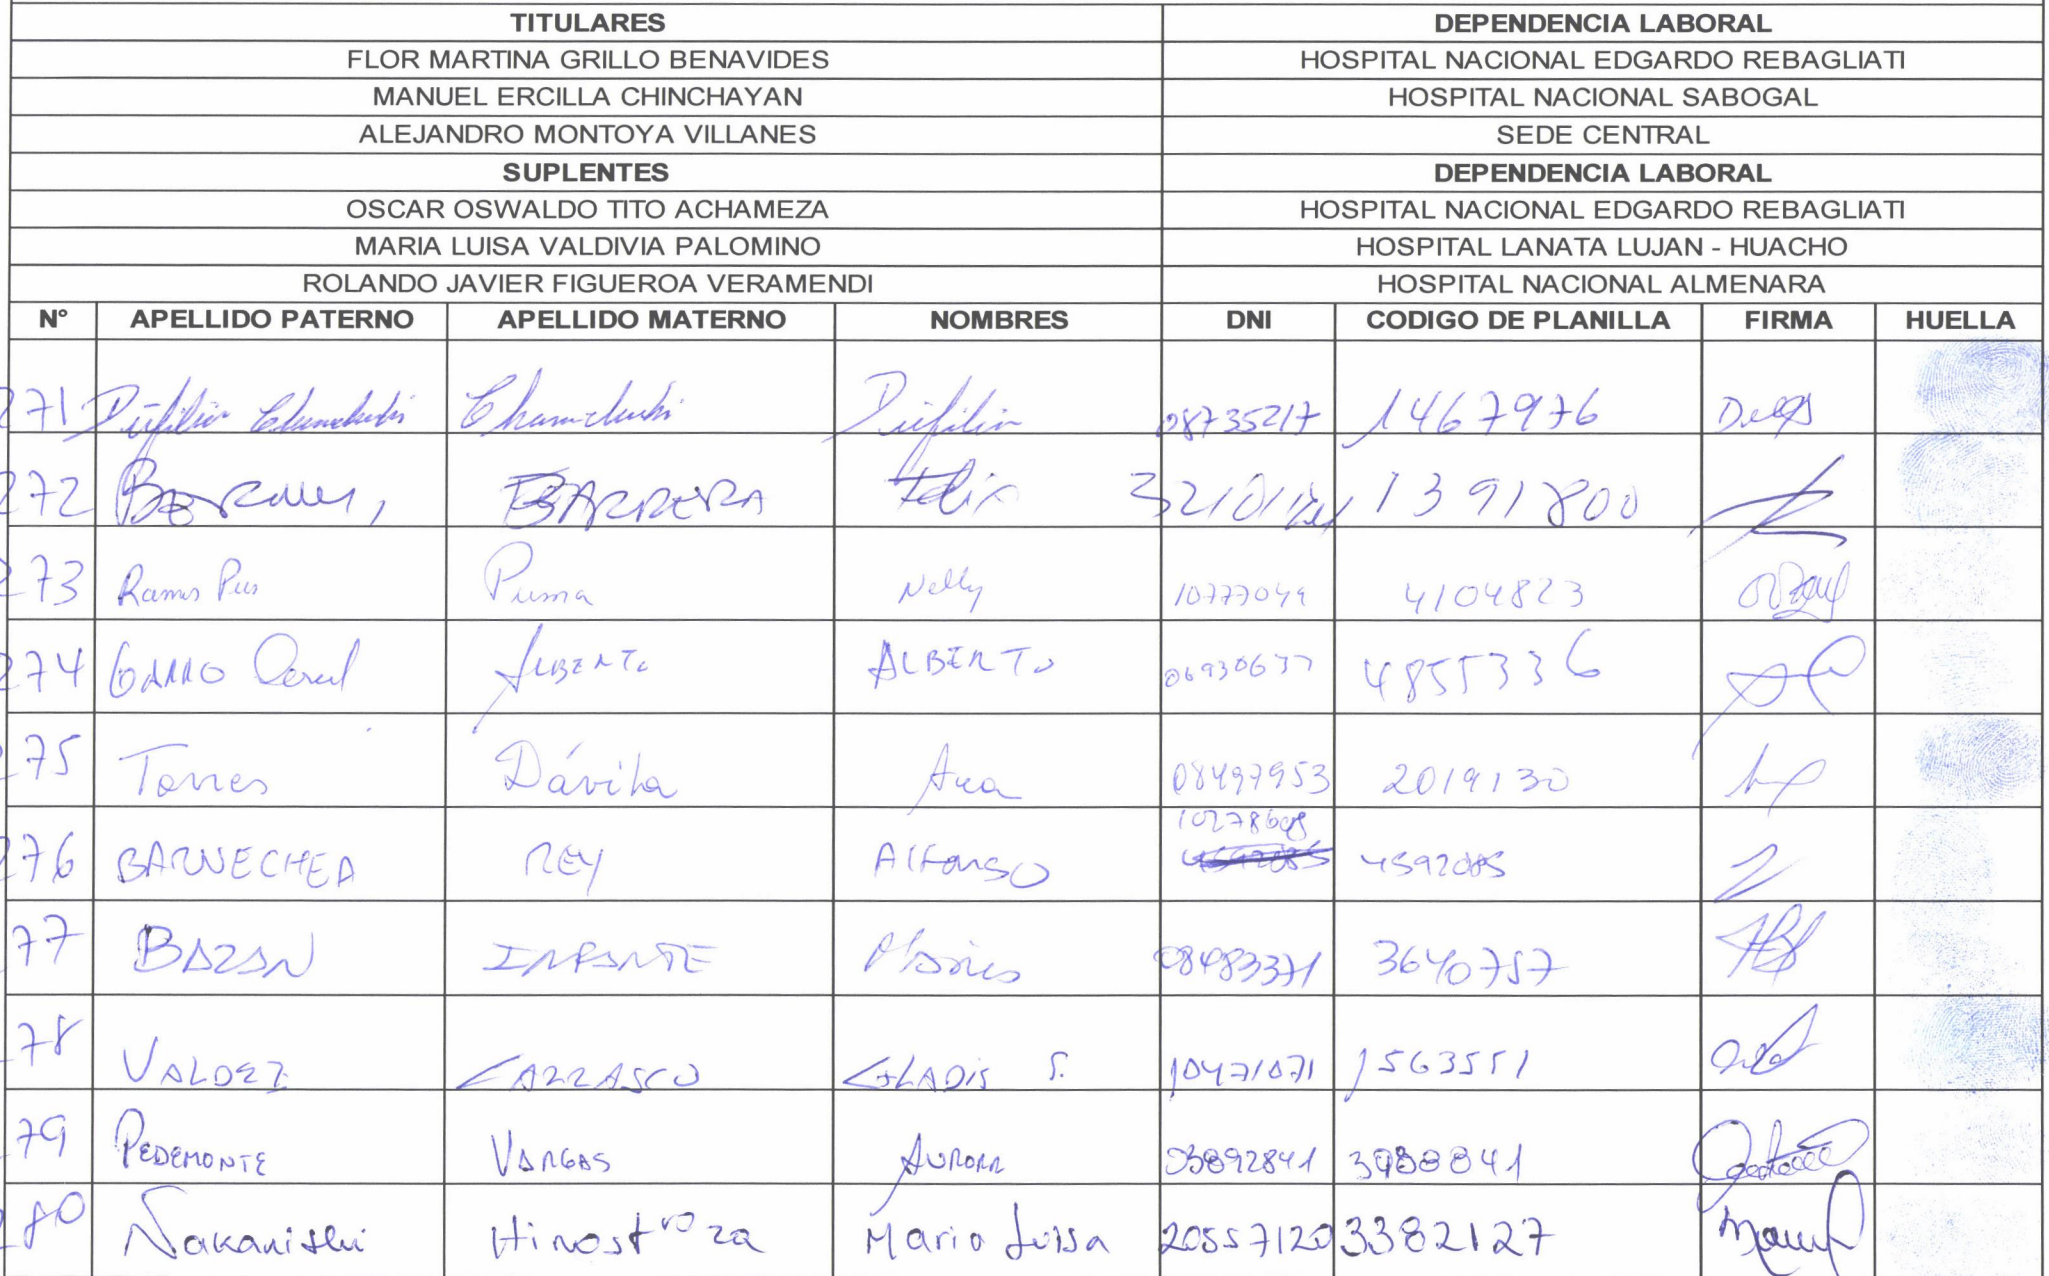 TITULARES DEPENDENCIA LABORAL
FLOR MARTINA GRILLO BENAVIDES HOSPITAL NACIONAL EDGARDO REBAGLIATI
MANUEL ERCILLA CHINCHAYAN HOSPITAL NACIONAL SABOGAL
ALEJANDRO MONTOYA VILLANES SEDE CENTRAL
SUPLENTES DEPENDENCIA LABORAL
OSCAR OSWALDO TITO ACHAMEZA HOSPITAL NACIONAL EDGARDO REBAGLIATI
MARIA LUISA VALDIVIA PALOMINO HOSPITAL LANATA LUJAN - HUACHO
ROLANDO JAVIER FIGUEROA VERAMENDI HOSPITAL NACIONAL ALMENARA
N° APELLIDO PATERNO APELLIDO MATERNO NOMBRES DNI CODIGO DE PLANILLA FIRMA HUELLA
271 08735217 1467976
272 BARRERA Felix 1391800
273 Ramos Puma Nelly 10777049 4104823
274 GARRO ALBERTO ALBERTO 4855336
275 Torres Dávila Ana 08497953 2019130
276 BARNECHEA REY Alfonso 4592085
77 BAZAN INFANTE 08483371 3640757
78 VALDEZ CARRASCO GLADIS S. 10471071 1563551
79 PEDEMONTE VARGAS AURORA 03892841 3988841
80 Nakanishi Hinostroza Maria Luisa 20557120 3382127